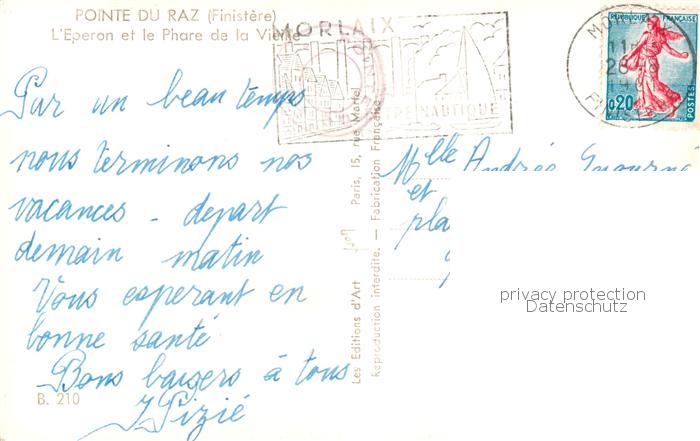 POINTE DU RAZ (Finistère)
L'Eperon et le Phare de la Vieille
Par un beau temps
nous terminons nos
vacances - depart
demain matin
Vous esperant en
bonne santé
Bons baisers à tous
J Pizié
B. 210
Les Editions d'Art Paris, 15, rue Martel
Reproduction interdite. — Fabrication Française
MORLAIX
NAUTIQUE
MORLAIX
FINIST
REPUBLIQUE FRANÇAISE
0,20
POSTES
Mlle Andrée
et
pla
privacy protection
Datenschutz